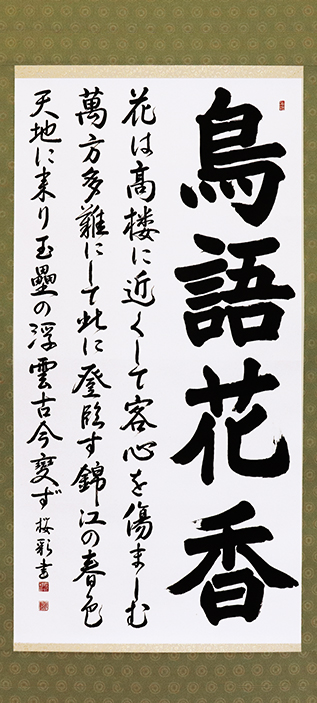 鳥語花香
花は高楼に近くして客心を傷ましむ
萬方多難にして此に登臨す錦江の春色
天地に来り玉壘の浮雲古今変ず 桜彩書